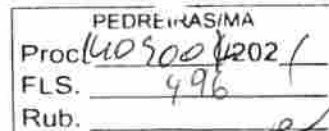 PEDREIRAS/MA
Proc. 140500 1/202 1
FLS. 496
Rub.